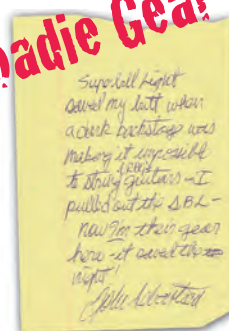 oadie Gear
Superball Light
saved my butt when
a dark backstage was
making it impossible
to string Jeff's guitars - I
pulled out the SBL -
now I'm their gear
hero - it saved the
night!